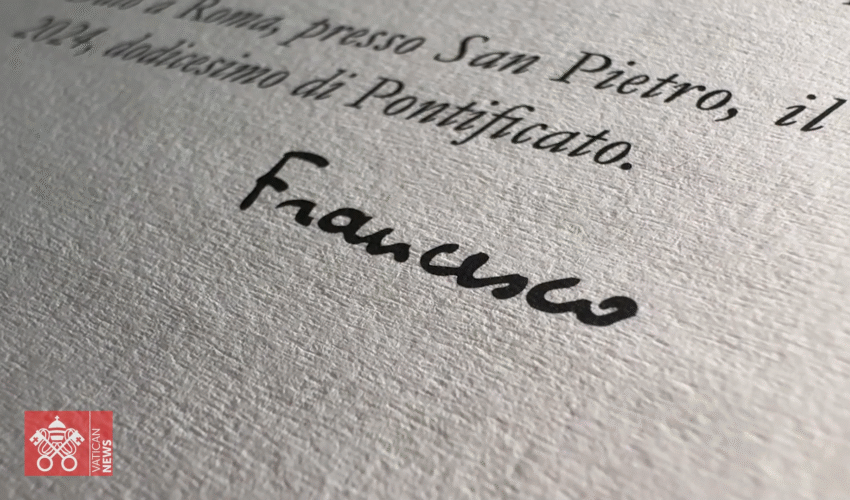 a Roma, presso San Pietro, il
2024, dodicesimo di Pontificato.
Francesco
VATICAN
NEWS